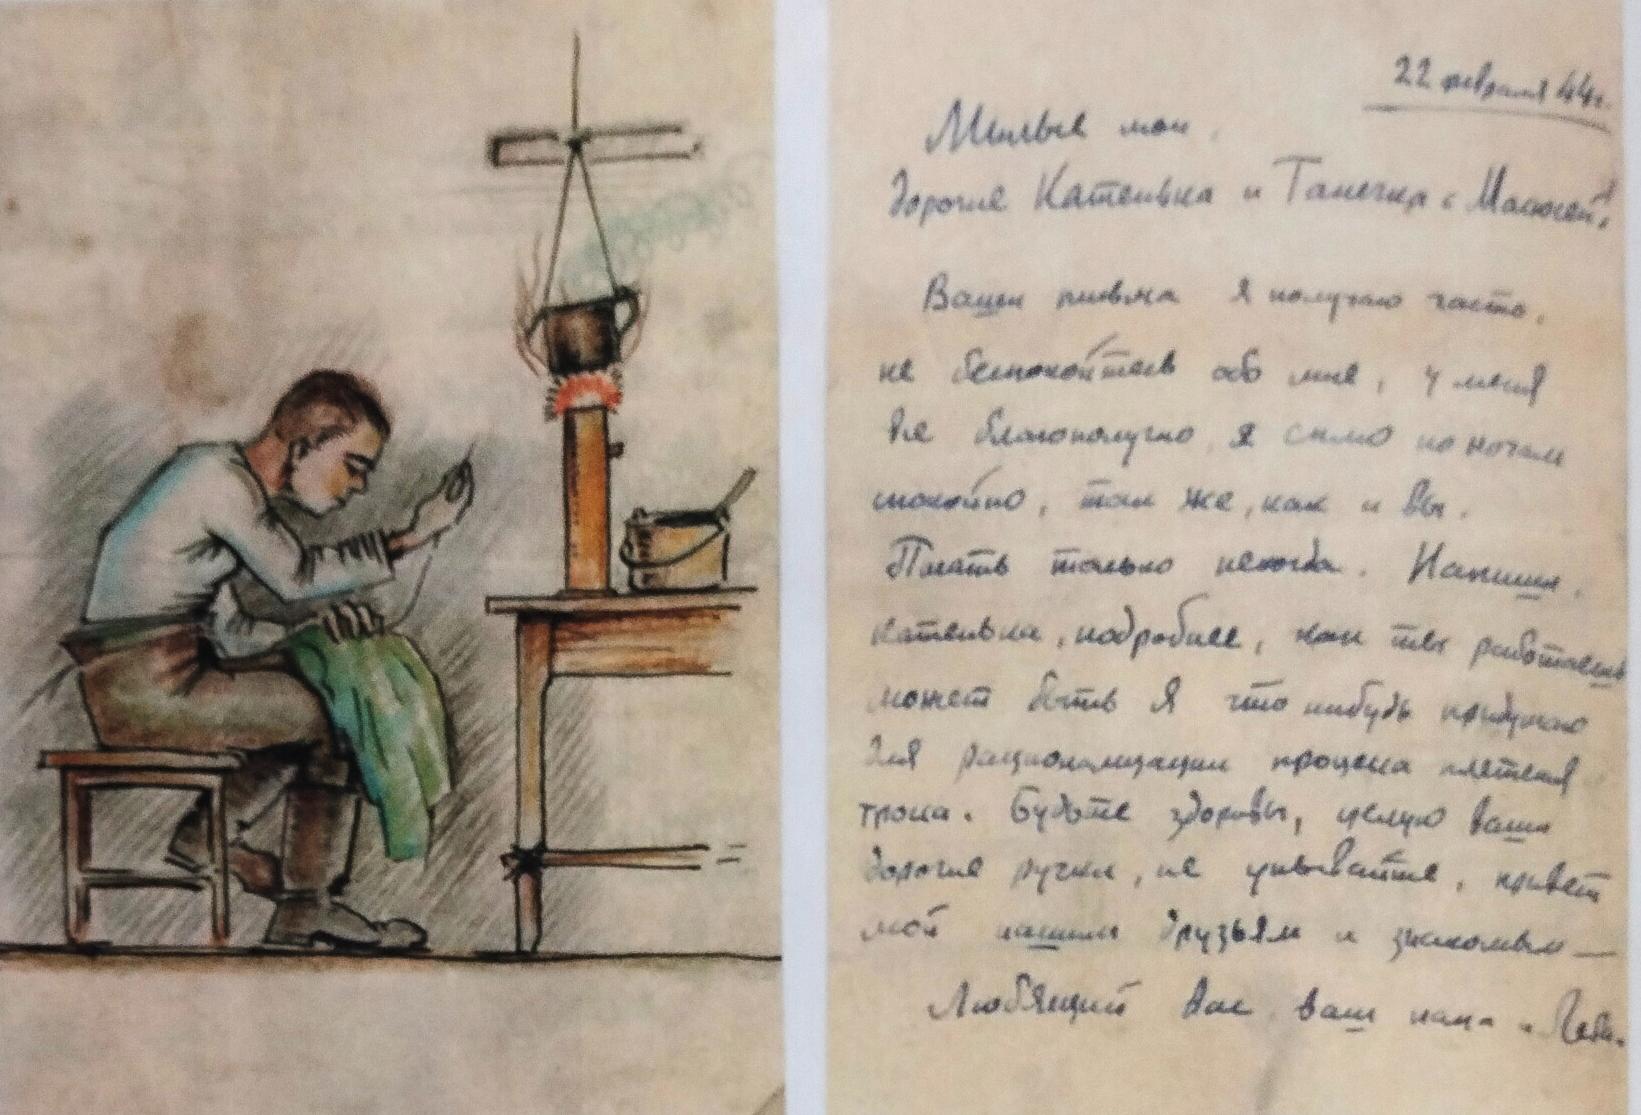 22 февраля 44г.
Милые мои,
дорогие Катенька и Танечка с Мамочкой!
Ваши письма я получаю часто,
не беспокойтесь обо мне, у меня
все благополучно, я сплю по ночам
спокойно, так же, как и вы.
Писать только некогда. Напиши,
Катенька, подробнее, как ты работаешь
может быть я что нибудь придумаю
для рационализации процесса плетения
троса. Будьте здоровы, целую ваши
дорогие ручки, не унывайте, привет
мой нашим друзьям и знакомым —
Любящий вас ваш папа и